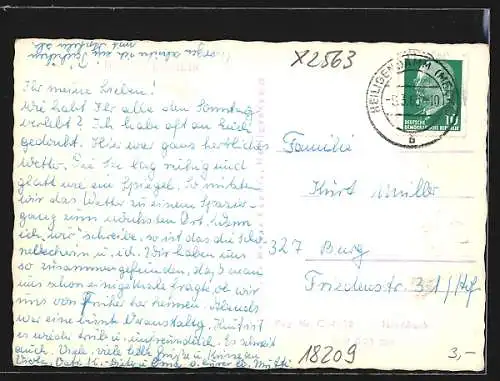 x2563
Ihr meine Lieben!
Wie habt Ihr alle den Sonntag
verlebt? Ich habe oft an Euch
gedacht. Hier war ganz herrliches
Wetter. Die See lag ruhig und
glatt wie ein Spiegel. So nutzten
wir das Wetter zu einem Spazier-
gang zum nächsten Ort. Wenn
ich „wir" schreibe, so ist das die
und ich. Wir haben uns
so zusammengefunden, daß man
uns schon eingehend fragte, ob wir
uns von früher her kennen. Abends
war eine bunte Veranstaltg. Heute ist
es wieder trüb u. unfreundlich. Es schneit
auch. Viele, viele liebe Grüße u. Küsse an
Oma Mutti
HEILIGENDAMM (MECKL)
-8.3.65-10
b
DEUTSCHE
DEMOKRATISCHE REPUBLIK
10
Familie
Kurt Müller
327 Burg
Friedenstr. 31/Hof
18209
3,-